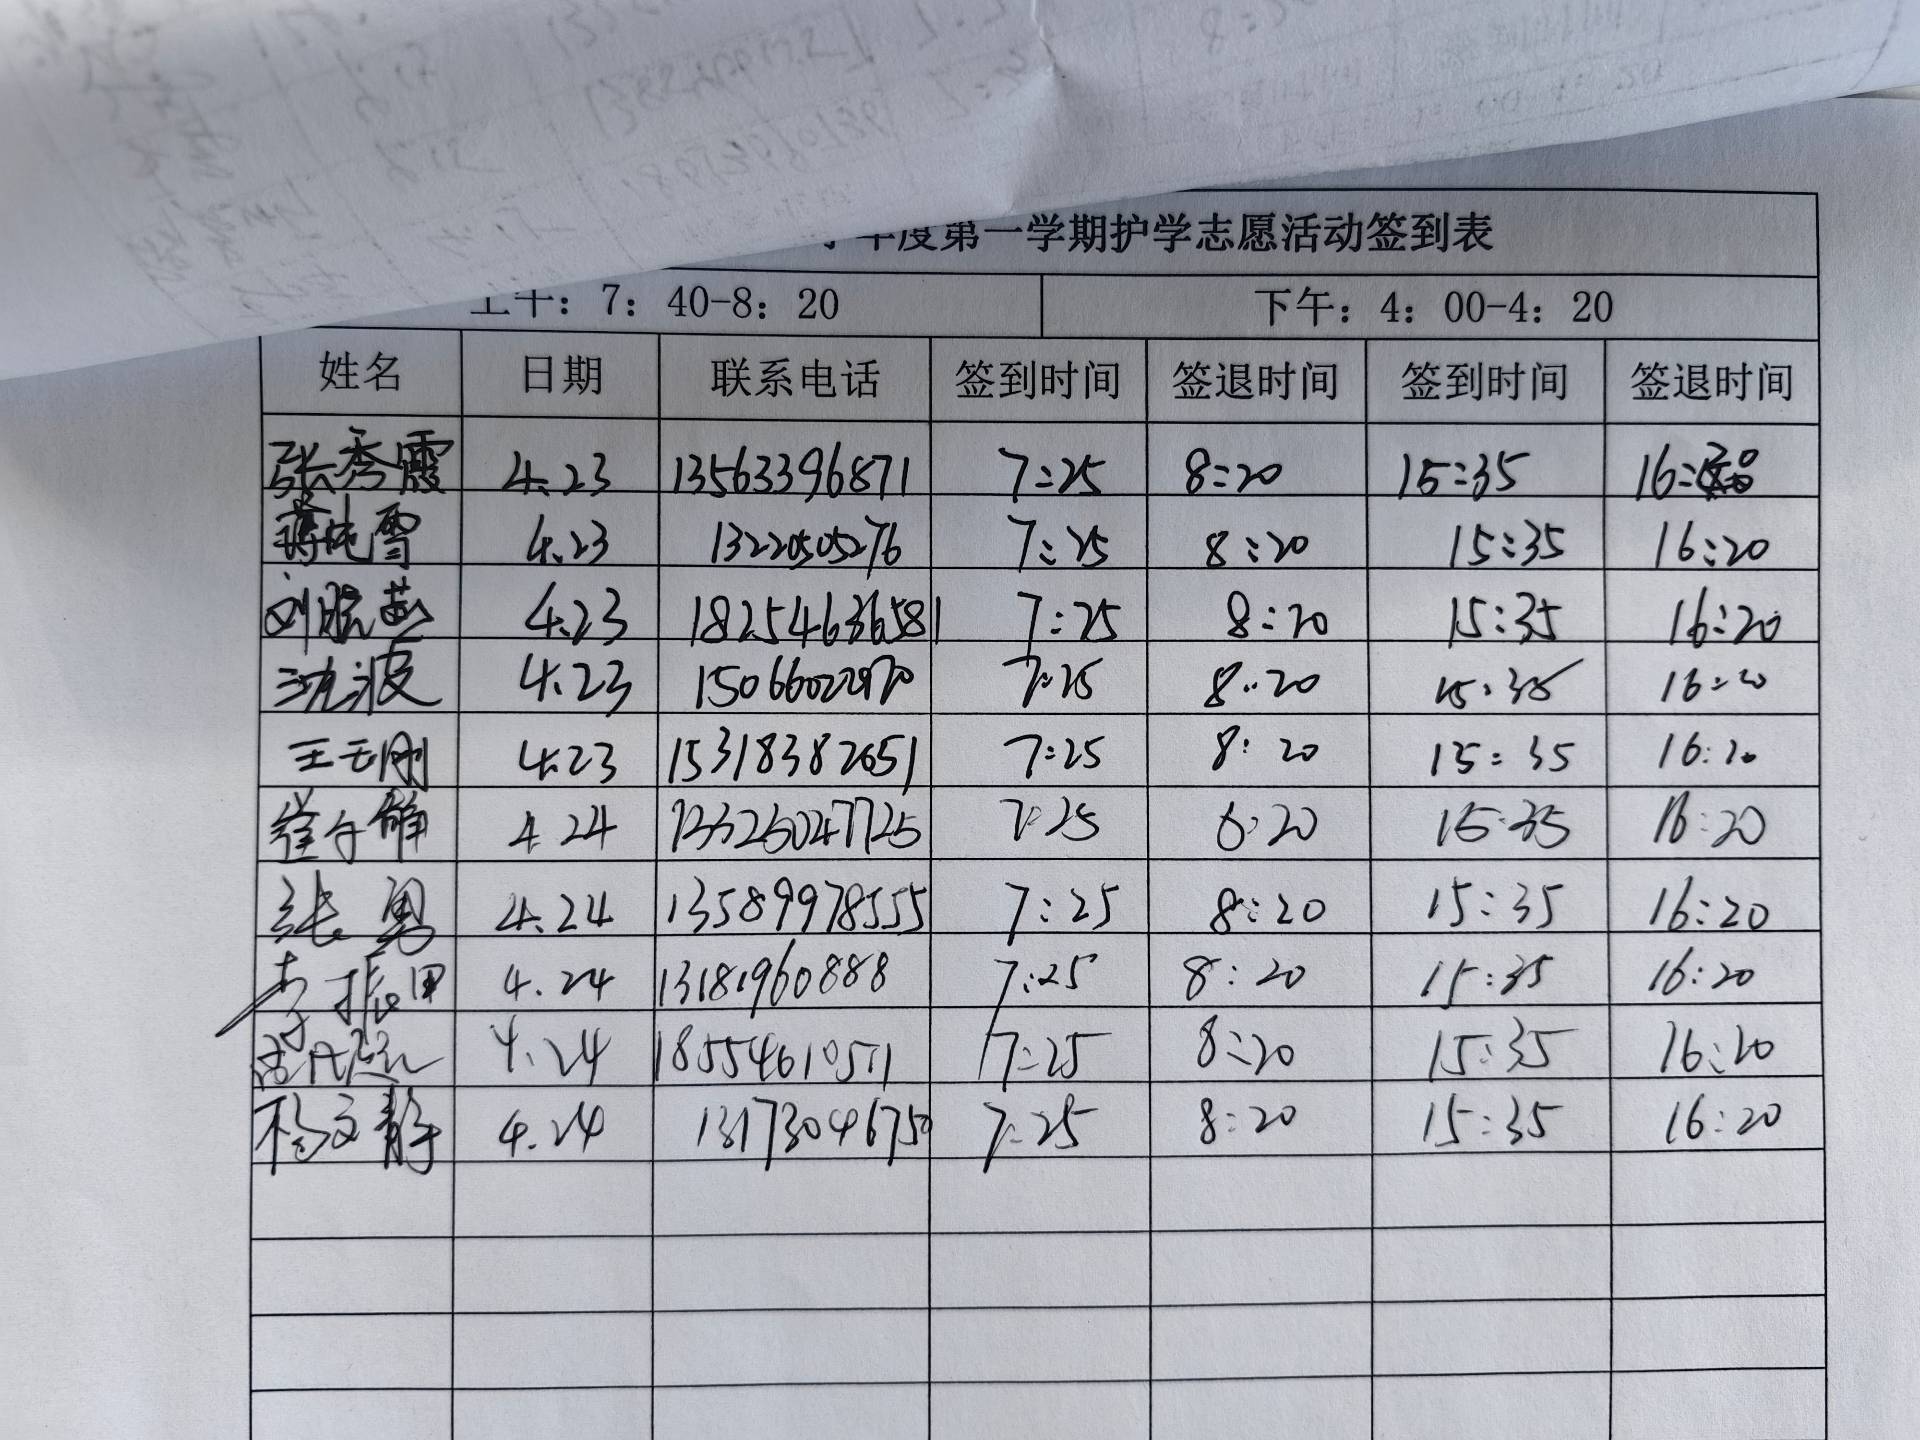 年度第一学期护学志愿活动签到表
上午：7：40-8：20 下午：4：00-4：20
姓名 日期 联系电话 签到时间 签退时间 签到时间 签退时间
张秀霞 4.23 13563396871 7:25 8:20 15:35 16:
4.23 13220505276 7:25 8:20 15:35 16:20
刘晓燕 4.23 18254636581 7:25 8:20 15:35 16:20
沈波 4.23 15066022970 7:25 8:20 15:35 16:20
王玉刚 4.23 15318382651 7:25 8:20 15:35 16:20
4.24 13325047725 7:25 8:20 15:35 16:20
张勇 4.24 13589978555 7:25 8:20 15:35 16:20
李振甲 4.24 13181960888 7:25 8:20 15:35 16:20
4.24 18554610511 7:25 8:20 15:35 16:20
杨文静 4.24 13173046750 7:25 8:20 15:35 16:20